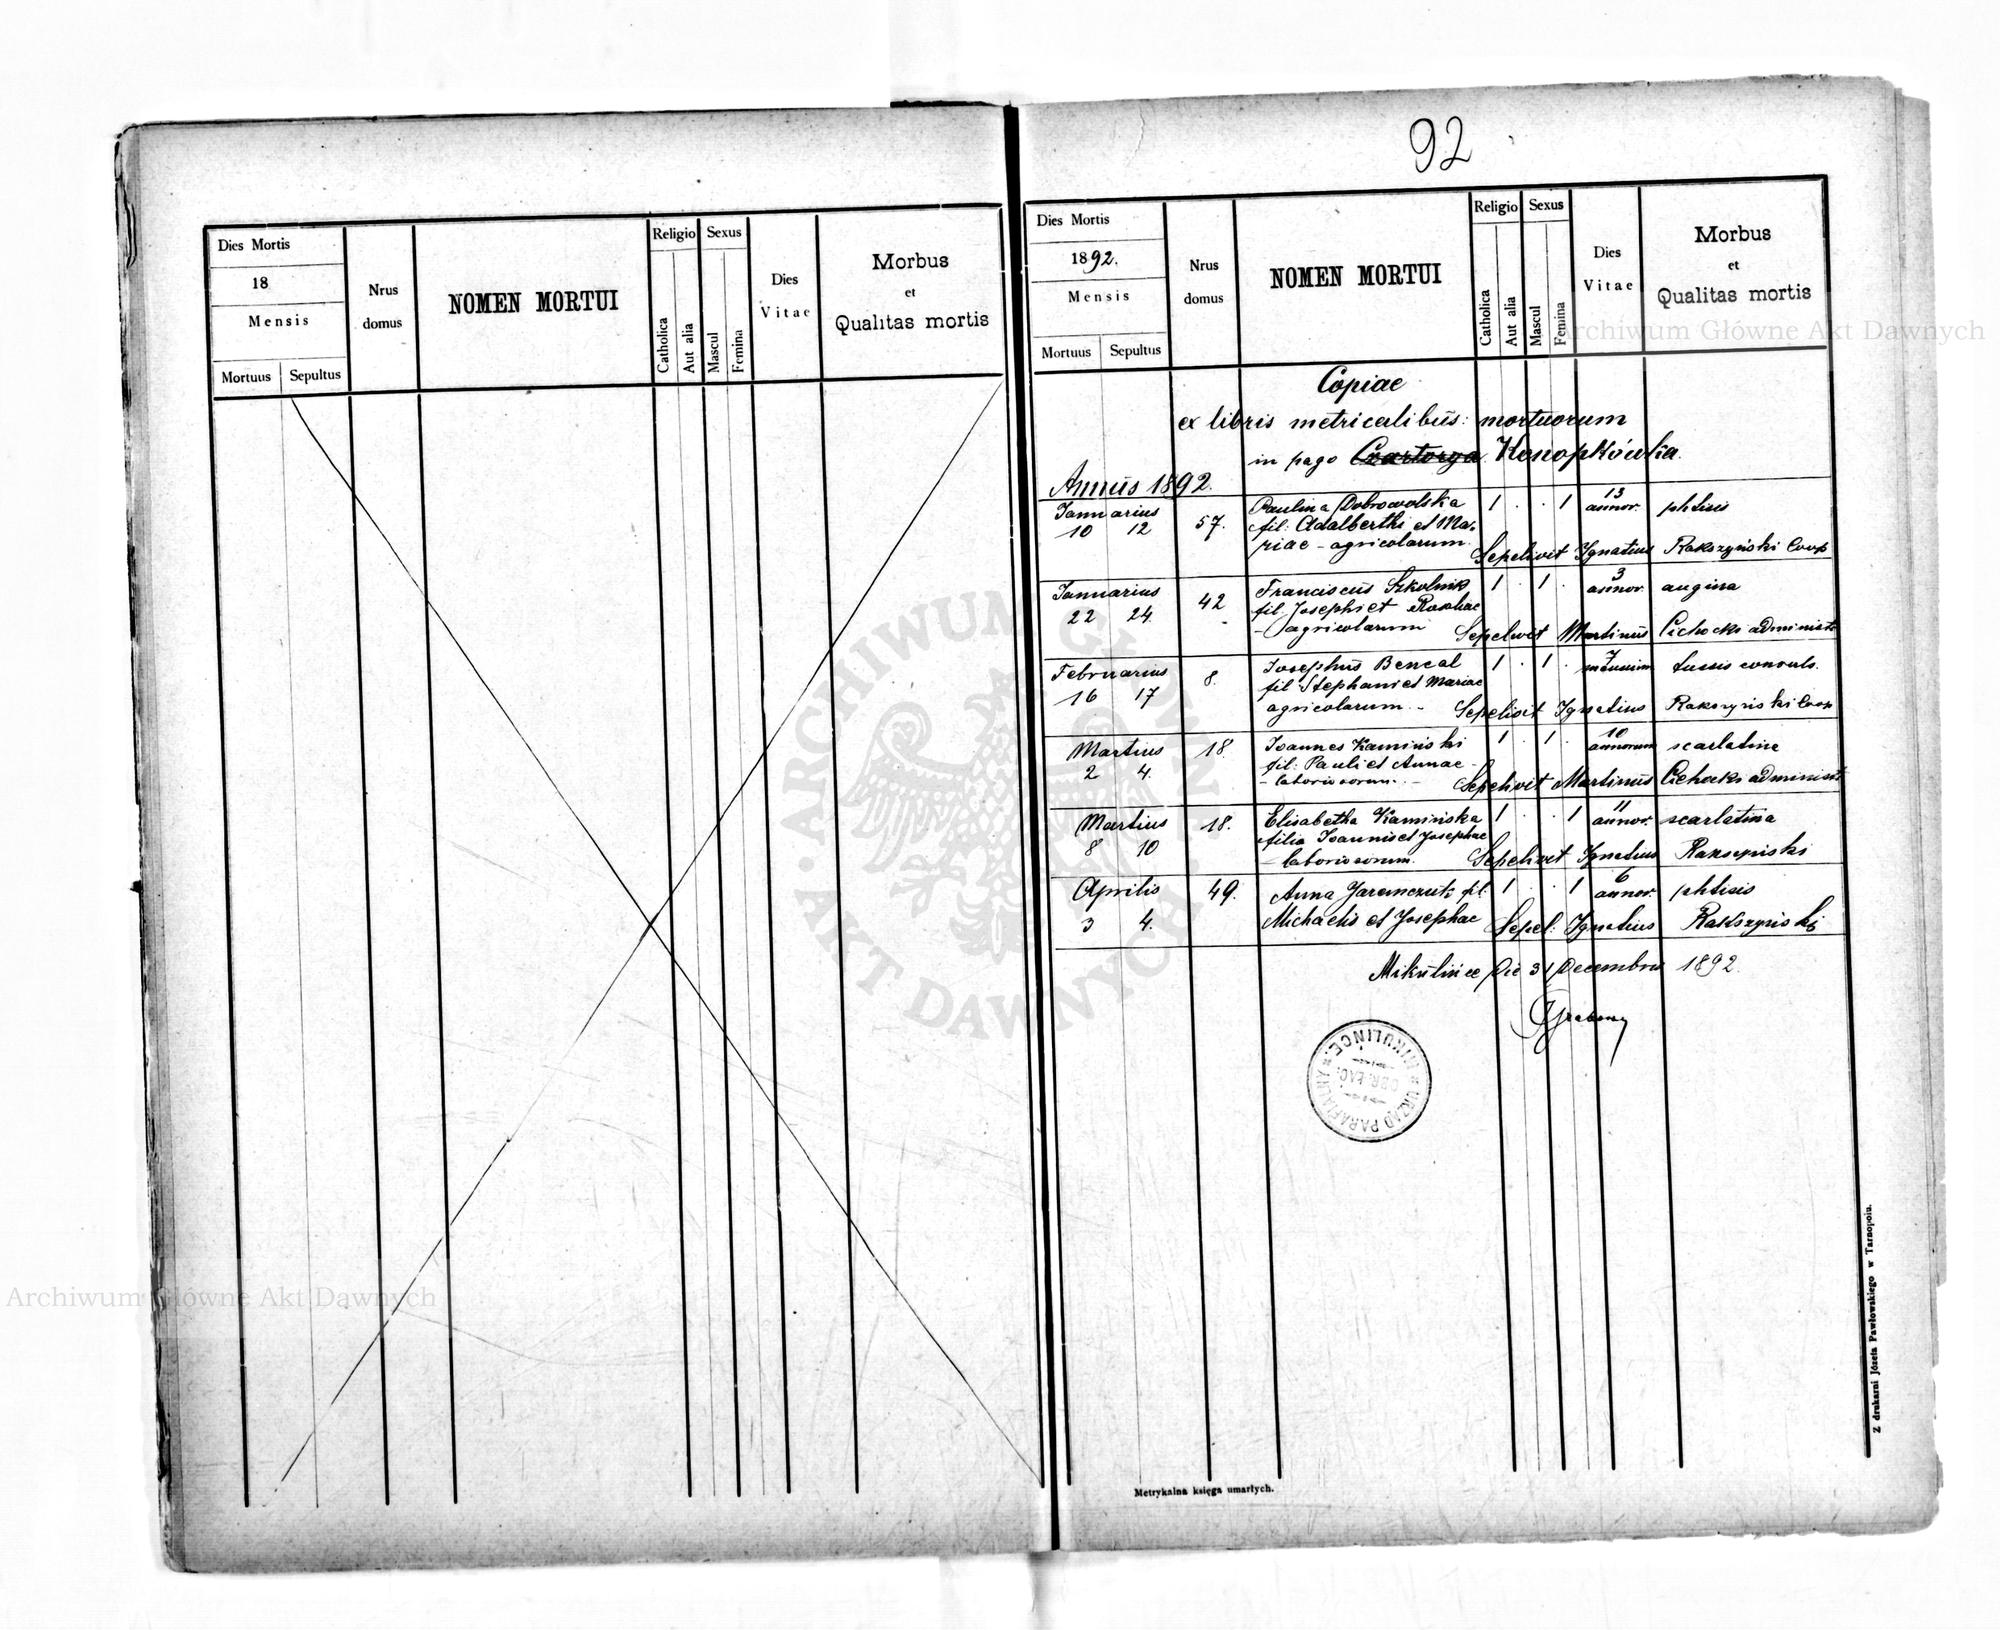 Dies Mortis
18
Mensis
Mortuus Sepultus
Nrus
domus
NOMEN MORTUI
Religio
Catholica
Aut alia
Sexus
Mascul
Femina
Dies
Vitae
Morbus
et
Qualitas mortis
92
Dies Mortis
1892.
Mensis
Mortuus Sepultus
Nrus
domus
NOMEN MORTUI
Religio
Catholica
Aut alia
Sexus
Mascul
Femina
Dies
Vitae
Morbus
et
Qualitas mortis
Copiae
ex libris metricalibus mortuorum
in pago Czartorya Konopkówka.
Annus 1892.
Januarius
10 12
57.
Paulina Dobrowolska
fil: Adalberthi et Ma-
riae - agricolarum.
1 . . 1
13
annor.
phtisis
Sepelivit Ignatius Rakszyński Coop
Januarius
22 24
42
Franciscus Szkolnik
fil. Josephi et Rosaliae
- agricolarum
1 . 1 .
3
annor
angina
Sepelivit Martinus Cichocki administr
Februarius
16 17
8.
Josephus Bencal
fil Stephani et Mariae
agricolarum. -
1 . 1 .
7
mensium
tussis convuls.
Sepelivit Ignatius Rakszyński Coop
Martius
2 4.
18.
Joannes Kamiński
fil: Pauli et Annae -
- laboriosorum. -
1 . 1 .
10
annorum
scarlatina
Sepelivit Martinus Cichocki administ
Martius
8 10
18.
Elisabetha Kamińska
filia Joannis et Josephae
- laboriosorum.
1 . . 1
11
annor.
scarlatina
Sepelivit Ignatius Rakszyński
Aprilis
3 4.
49.
Anna Jaremczuk fil.
Michaelis et Josephae
1 . . 1
6
annor.
phtisis
Sepel: Ignatius Rakszyński
Mikulińce Die 31 Decembris 1892.
URZĄD PARAFIALNY
OBR. ŁAC.
MIKULIŃCE.
Metrykalna księga umarłych.
Z drukarni Józefa Pawłowskiego w Tarnopolu.
Archiwum Główne Akt Dawnych
Archiwum Główne Akt Dawnych
ARCHIWUM GŁÓWNE AKT DAWNYCH